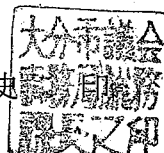 大分市議会
史
事務局総務
課長之印